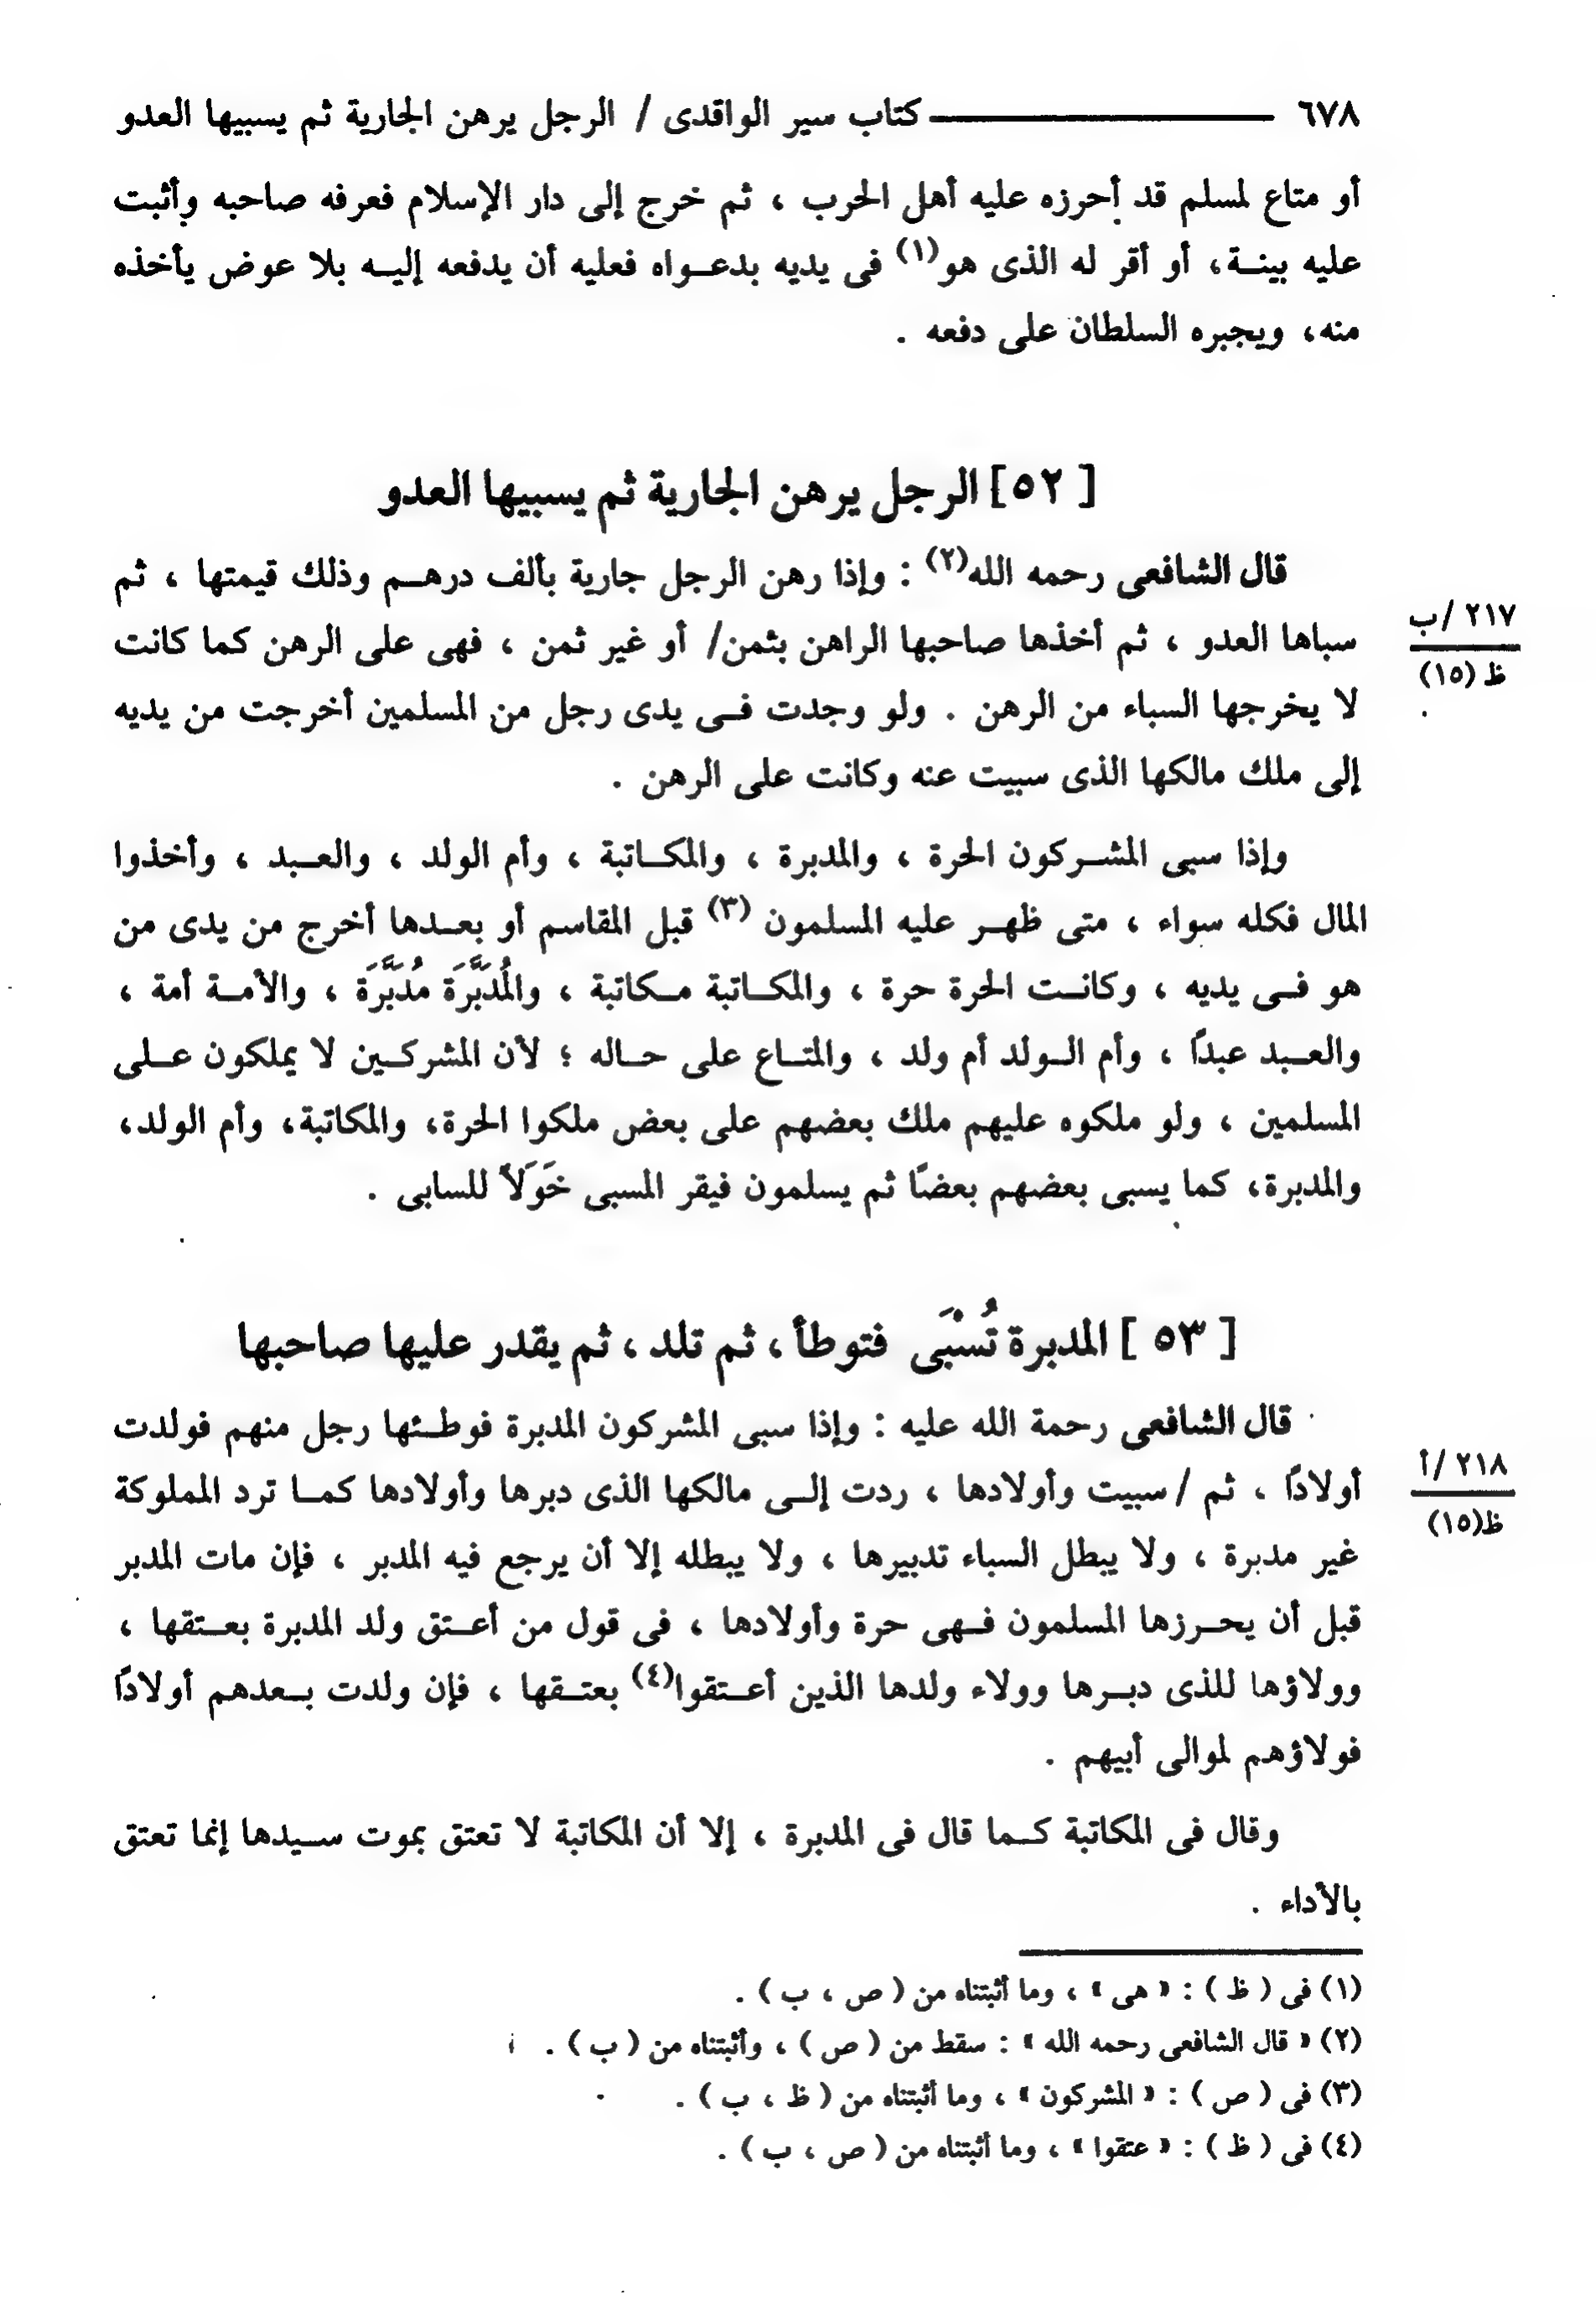 ٦٧٨ ــــــــ كتاب سير الواقدى / الرجل يرهن الجارية ثم يسبيها العدو
أو متاع لمسلم قد أحرزه عليه أهل الحرب ، ثم خرج إلى دار الإسلام فعرفه صاحبه وأثبت
عليه بينة، أو أقر له الذى هو(١) فى يديه بدعواه فعليه أن يدفعه إليه بلا عوض يأخذه
منه، ويجبره السلطان على دفعه .
[ ٥٢] الرجل يرهن الجارية ثم يسبيها العدو
قال الشافعى رحمه الله(٢) : وإذا رهن الرجل جارية بألف درهم وذلك قيمتها ، ثم
٢١٧ /ب
سباها العدو ، ثم أخذها صاحبها الراهن بثمن/ أو غير ثمن ، فهى على الرهن كما كانت
ظ (١٥)
لا يخرجها السباء من الرهن . ولو وجدت فى يدى رجل من المسلمين أخرجت من يديه
إلى ملك مالكها الذى سبيت عنه وكانت على الرهن .
وإذا سبى المشركون الحرة ، والمدبرة ، والمكاتبة ، وأم الولد ، والعبد ، وأخذوا
المال فكله سواء ، متى ظهر عليه المسلمون (٣) قبل المقاسم أو بعدها أخرج من يدى من
هو فى يديه ، وكانت الحرة حرة ، والمكاتبة مكاتبة ، والمُدَبَّرَة مُدَبَّرَة ، والأمة أمة ،
والعبد عبدًا ، وأم الولد أم ولد ، والمتاع على حاله ؛ لأن المشركين لا يملكون على
المسلمين ، ولو ملكوه عليهم ملك بعضهم على بعض ملكوا الحرة، والمكاتبة، وأم الولد،
والمدبرة، كما يسبى بعضهم بعضًا ثم يسلمون فيقر المسبى خَوَلاً للسابى .
[ ٥٣ ] المدبرة تُسْبَى فتوطأ ، ثم تلد ، ثم يقدر عليها صاحبها
قال الشافعى رحمة الله عليه : وإذا سبى المشركون المدبرة فوطئها رجل منهم فولدت
٢١٨ /أ
أولادًا ، ثم / سبيت وأولادها ، ردت إلى مالكها الذى دبرها وأولادها كما ترد المملوكة
ظ(١٥)
غير مدبرة ، ولا يبطل السباء تدبيرها ، ولا يبطله إلا أن يرجع فيه المدبر ، فإن مات المدبر
قبل أن يحرزها المسلمون فهى حرة وأولادها ، فى قول من أعتق ولد المدبرة بعتقها ،
وولاؤها للذى دبرها وولاء ولدها الذين أعتقوا(٤) بعتقها ، فإن ولدت بعدهم أولادًا
فولاؤهم لموالى أبيهم .
وقال فى المكاتبة كما قال فى المدبرة ، إلا أن المكاتبة لا تعتق بموت سيدها إنما تعتق
بالأداء .
(١) فى ( ظ ) : « هى » ، وما أثبتناه من ( ص ، ب ) .
(٢) « قال الشافعى رحمه الله » : سقط من ( ص ) ، وأثبتناه من ( ب ) .
(٣) فى ( ص ) : « المشركون » ، وما أثبتناه من ( ظ ، ب ) .
(٤) فى ( ظ ) : « عتقوا » ، وما أثبتناه من ( ص ، ب ) .